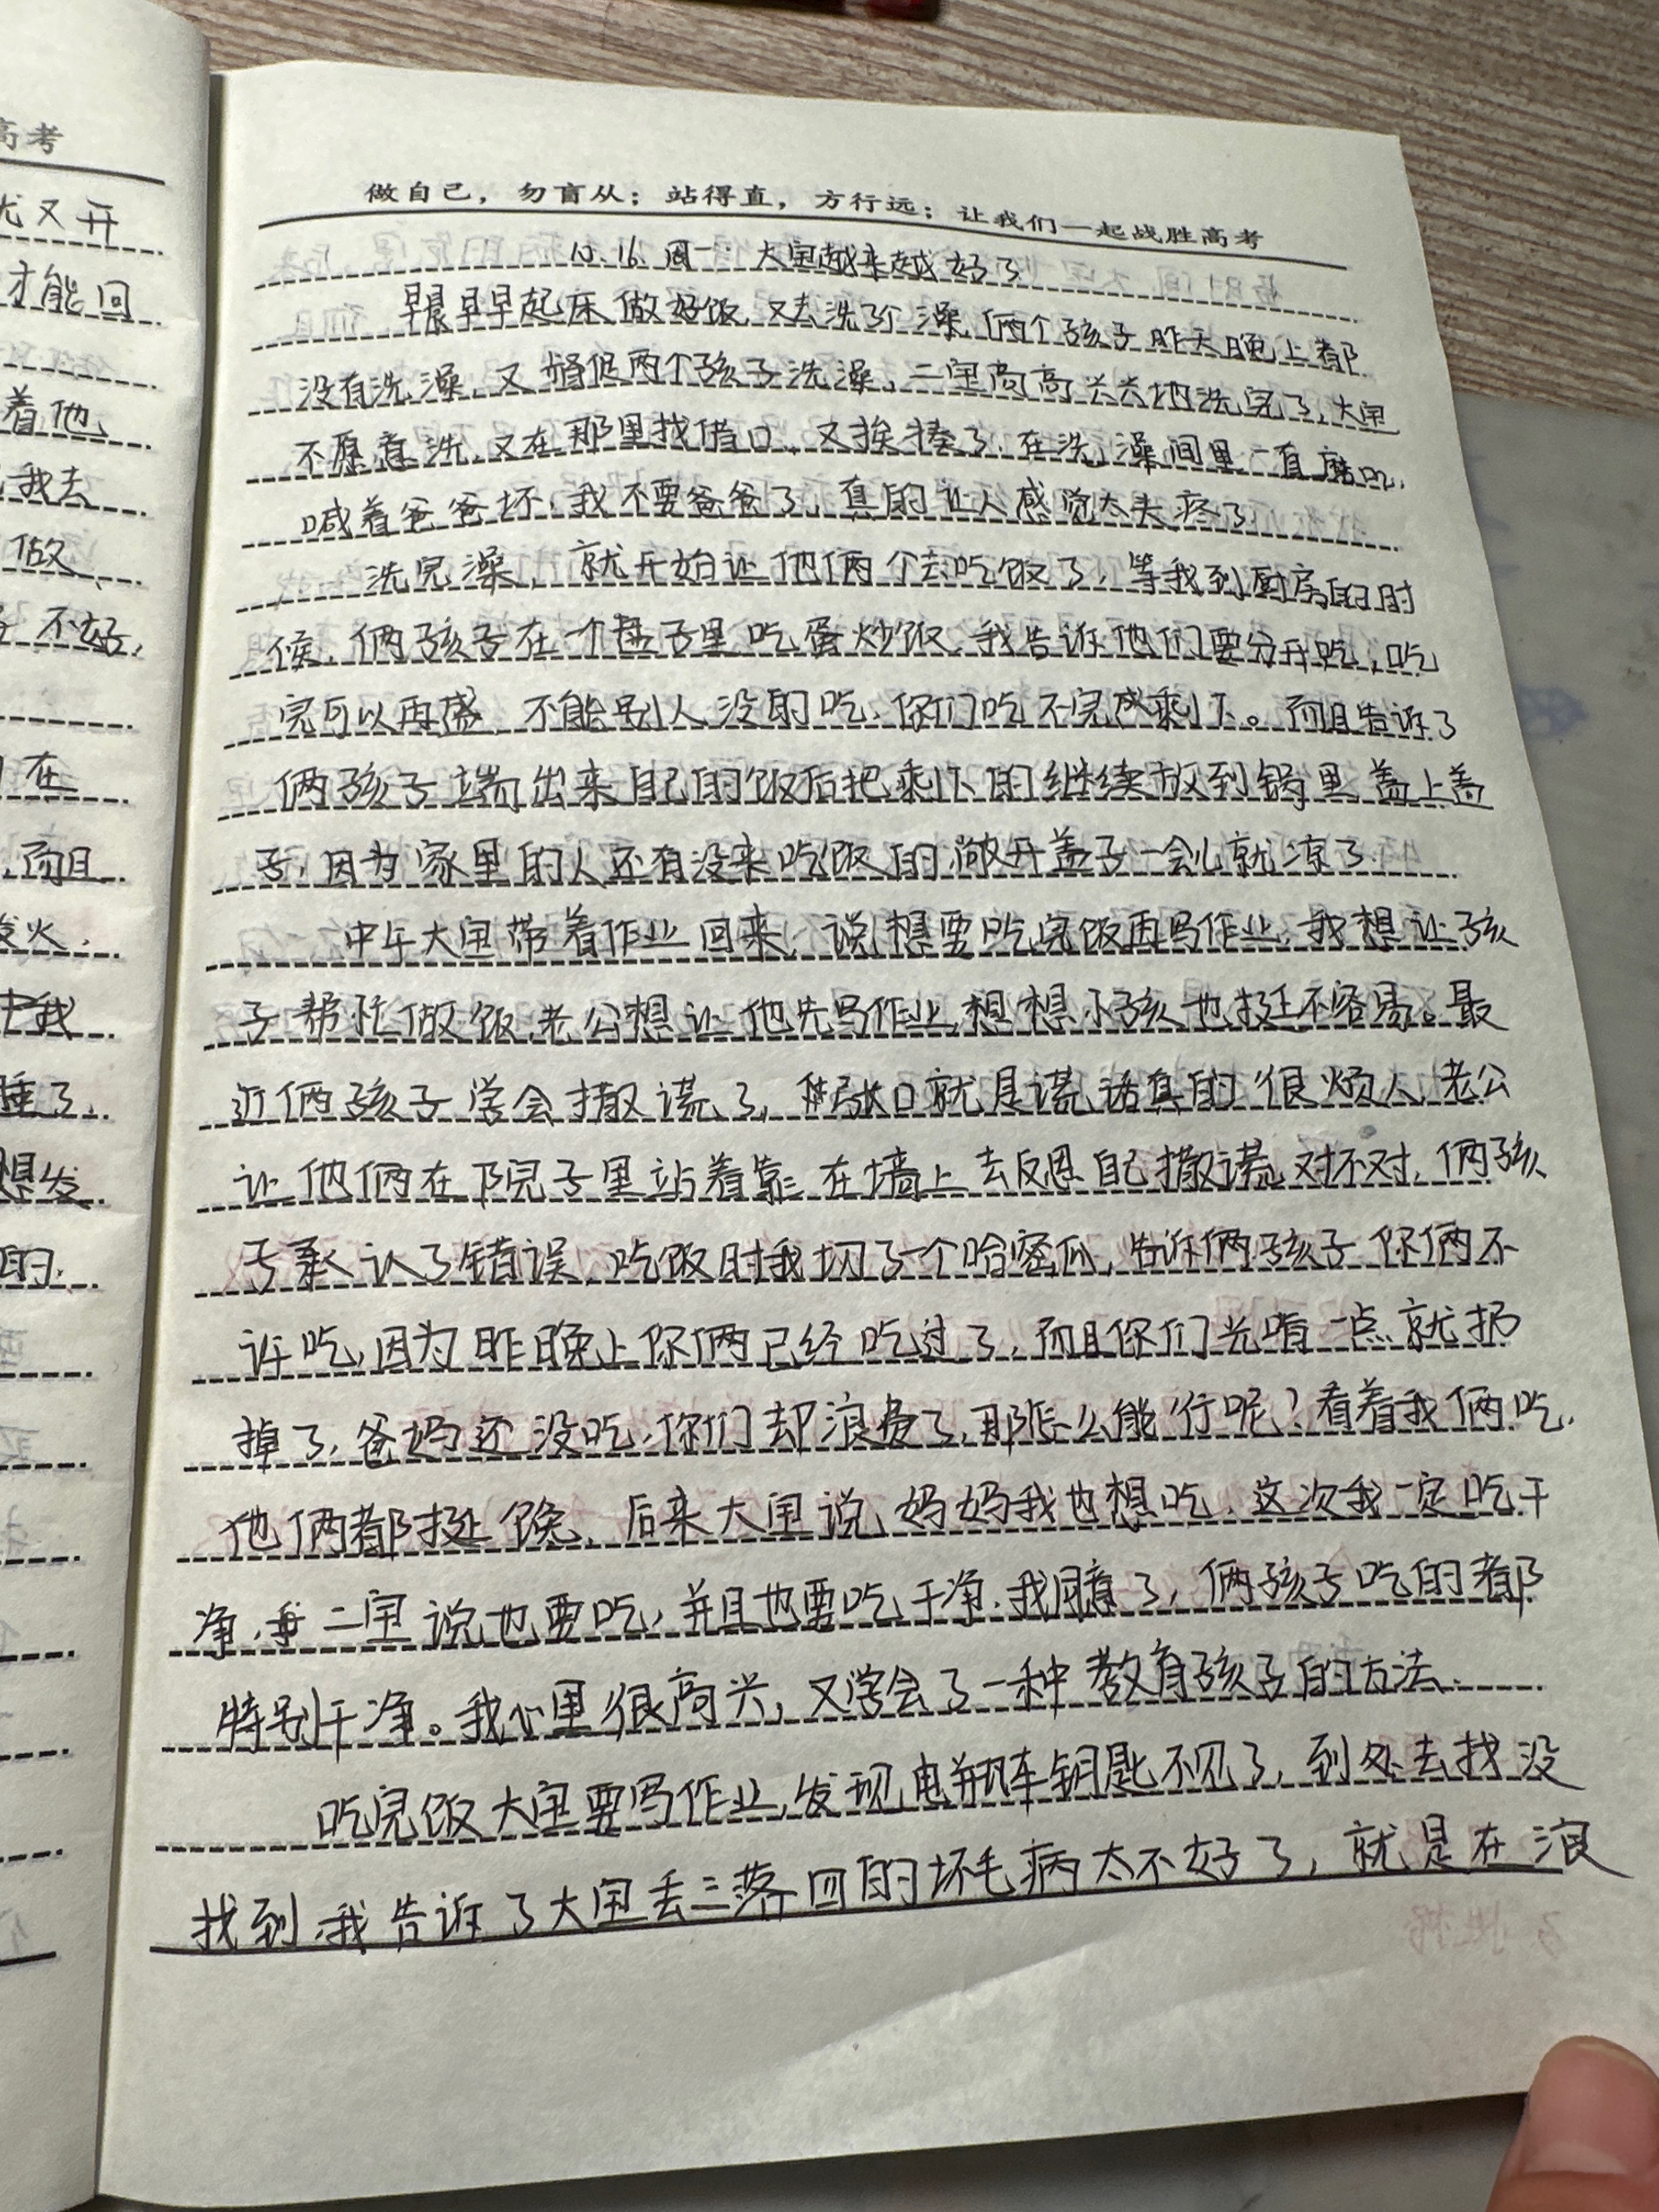 高考
尤又开
才能回
着他
我去
做
不好,
在
而且
发火.
我
睡了.
想发
的.
做自己，勿盲从；站得直，方行远；让我们一起战胜高考
10.16 周一 大宝越来越好了
早晨早早起床做好饭,又去洗了个澡,俩个孩子昨天晚上都
没有洗澡,又督促两个孩子洗澡,二宝高高兴兴地洗完了,大宝
不愿意洗,又在那里找借口,又挨揍了,在洗澡间里一直磨叽,
喊着爸爸坏,我不要爸爸了,真的让人感觉太头疼了
洗完澡,就开始让他俩个去吃饭了,等我到厨房的时
候,俩孩子在一个盘子里吃蛋炒饭,我告诉他们要分开吃,吃
完可以再盛,不能别人没的吃,你们吃不完成剩下。而且告诉了
俩孩子端出来自己的饭后把剩下的继续放到锅里盖上盖
子,因为家里的人还有没来吃饭的,敞开盖子一会儿就凉了.
中午大宝带着作业回来,说想要吃完饭再写作业,我想让孩
子帮忙做饭,老公想让他先写作业,想想小孩也挺不容易。最
近俩孩子学会撒谎了,张口就是谎话真的很烦人,老公
让他俩在院子里站着靠在墙上去反思自己撒谎对不对,俩孩
子承认了错误,吃饭时我切了一个哈密瓜,告诉俩孩子你俩不
许吃,因为昨晚上你俩已经吃过了,而且你们光啃一点就扔
掉了,爸妈还没吃,你们却浪费了,那怎么能行呢?看着我俩吃,
他俩都挺馋,后来大宝说妈妈我也想吃,这次我一定吃干
净,二宝说也要吃,并且也要吃干净.我同意了,俩孩子吃的都
特别干净。我心里很高兴,又学会了一种教育孩子的方法.
吃完饭大宝要写作业,发现电瓶车钥匙不见了,到处去找没
找到,我告诉了大宝丢三落四的坏毛病太不好了,就是在浪